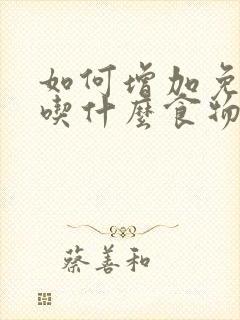 如何增加免
喫什麼食物
蔡善和